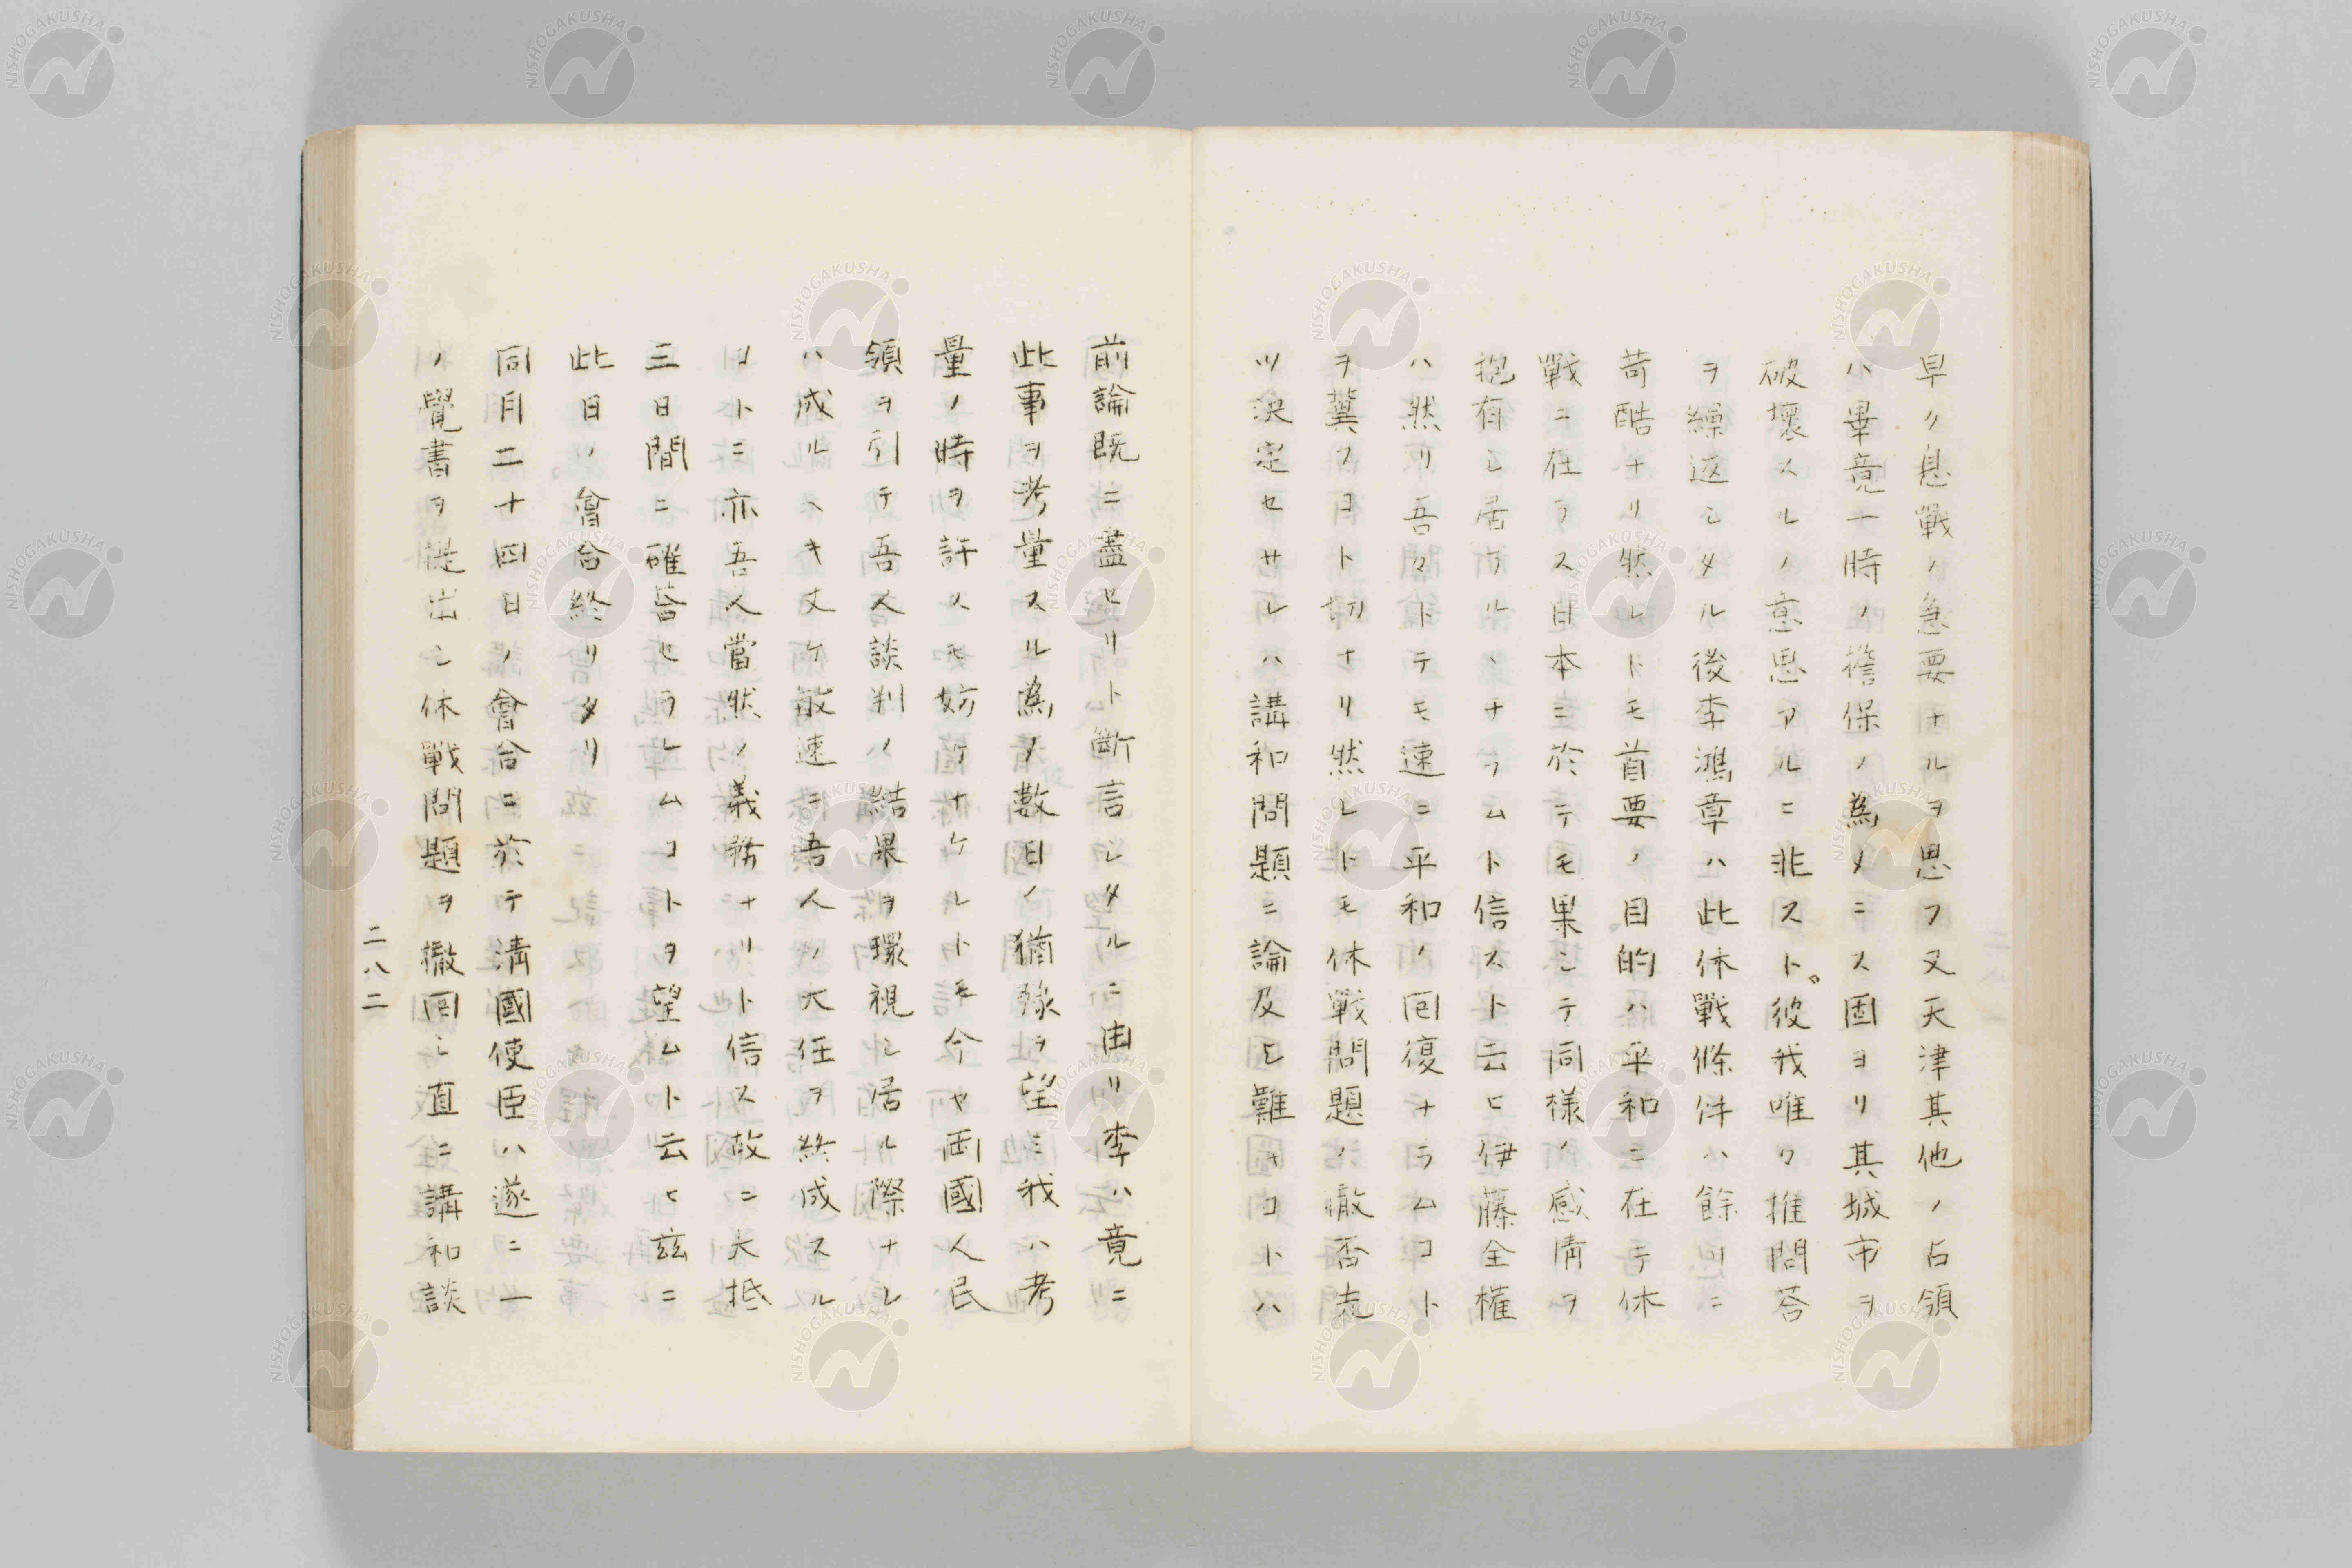 早ク息戰ノ急要ナルヲ思フ又天津其他ノ占領
ハ畢竟一時ノ擔保ノ爲メニス固ヨリ其城市ヲ
破壞スルノ意思アルニ非スト。彼我唯タ推問答
ヲ繰返シタル後李鴻章ハ此休戰條件ハ餘リニ
苛酷ナリ然レトモ首要ノ目的ハ平和ニ在テ休
戰ニ在ラス日本ニ於テモ果シテ同樣ノ感情ヲ
抱有シ居ラル、ナラムト信スト云ヒ伊藤全權
ハ然リ吾々トテモ速ニ平和ノ囘復ナラムコト
ヲ冀フヿト切ナリ然レトモ休戰問題ノ撤否先
ツ決定セサレハ講和問題ニ論及シ難キコトハ
前論既ニ盡セリト斷言シタルニ由リ李ハ竟ニ
此事ヲ考量スル爲メ數日ノ猶豫ヲ望ミ我ハ考
量ノ時ヲ許スモ妨ケナケレトモ今ヤ兩國人民
領ヲ引テ吾人談判ノ結果ヲ環視シ居ル際ナレ
ハ成ルヘキ丈ケ敏速ニ吾人ノ大任ヲ終成スル
コトニ亦吾人當然ノ義務ナリト信ス故ニ大抵
三日間ニ確答セラレムコトヲ望ムト云ヒ茲ニ
此日ノ會合終リタリ
同月二十四日ノ會合ニ於テ淸國使臣ハ遂ニ一
ノ覺書ヲ提出シ休戰問題ヲ撤囘シ直ニ講和談
二八二
NISHOGAKUSHA